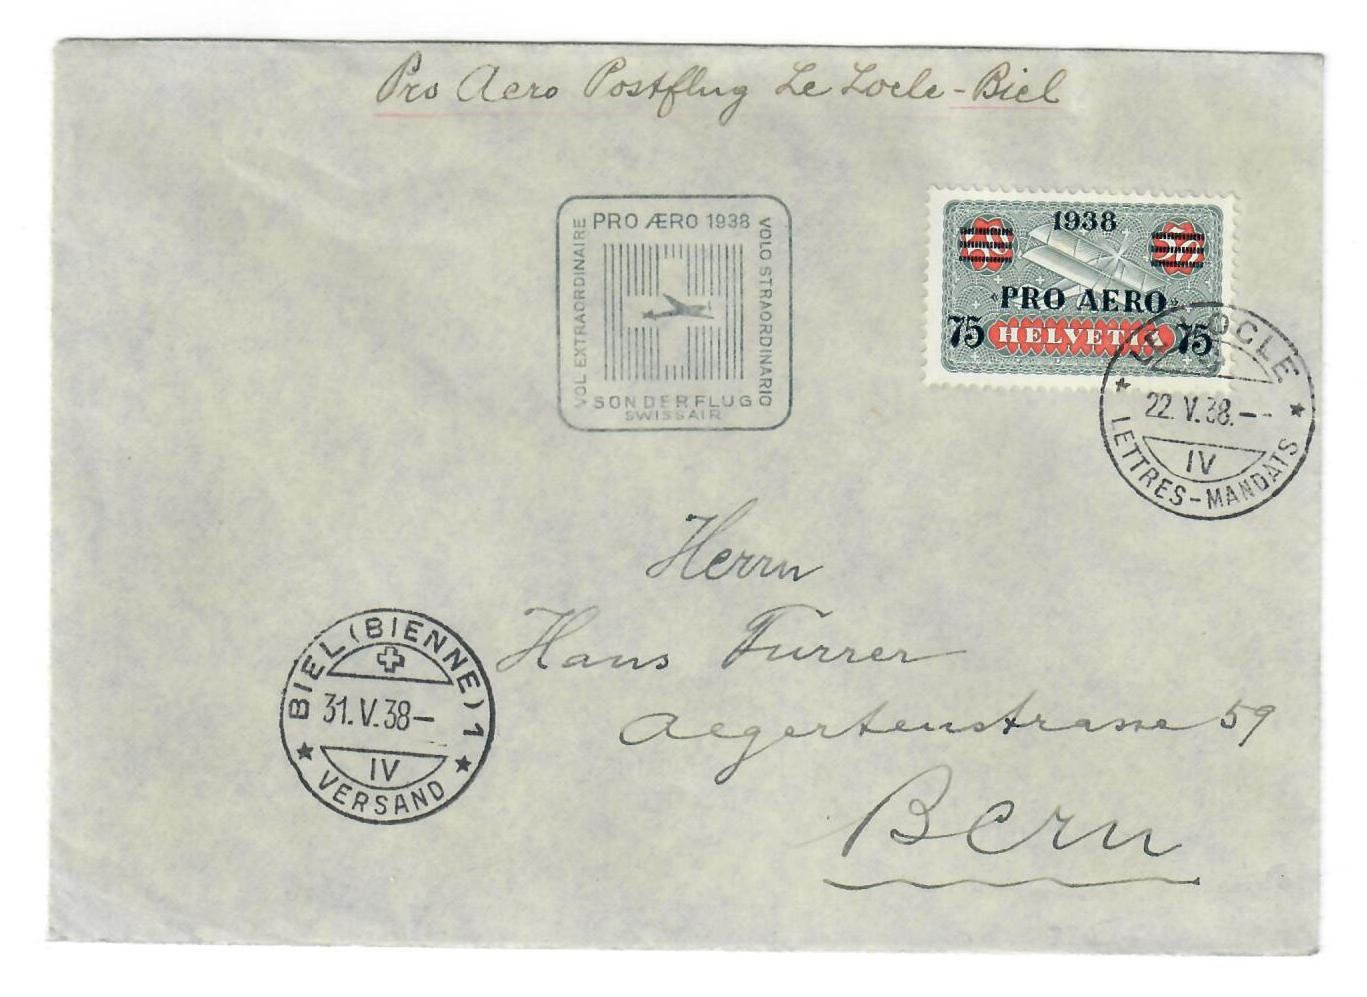 Pro Aero Postflug Le Locle-Biel
PRO ÆRO 1938
VOL EXTRAORDINAIRE
VOLO STRAORDINARIO
SONDERFLUG
SWISSAIR
1938
«PRO AERO»
75 HELVETIA 75
LE LOCLE
22.V.38.--
IV
LETTRES-MANDATS
Herrn
Hans Furrer
Aegertenstrasse 59
Bern
BIEL (BIENNE) 1
31.V.38-
IV
VERSAND